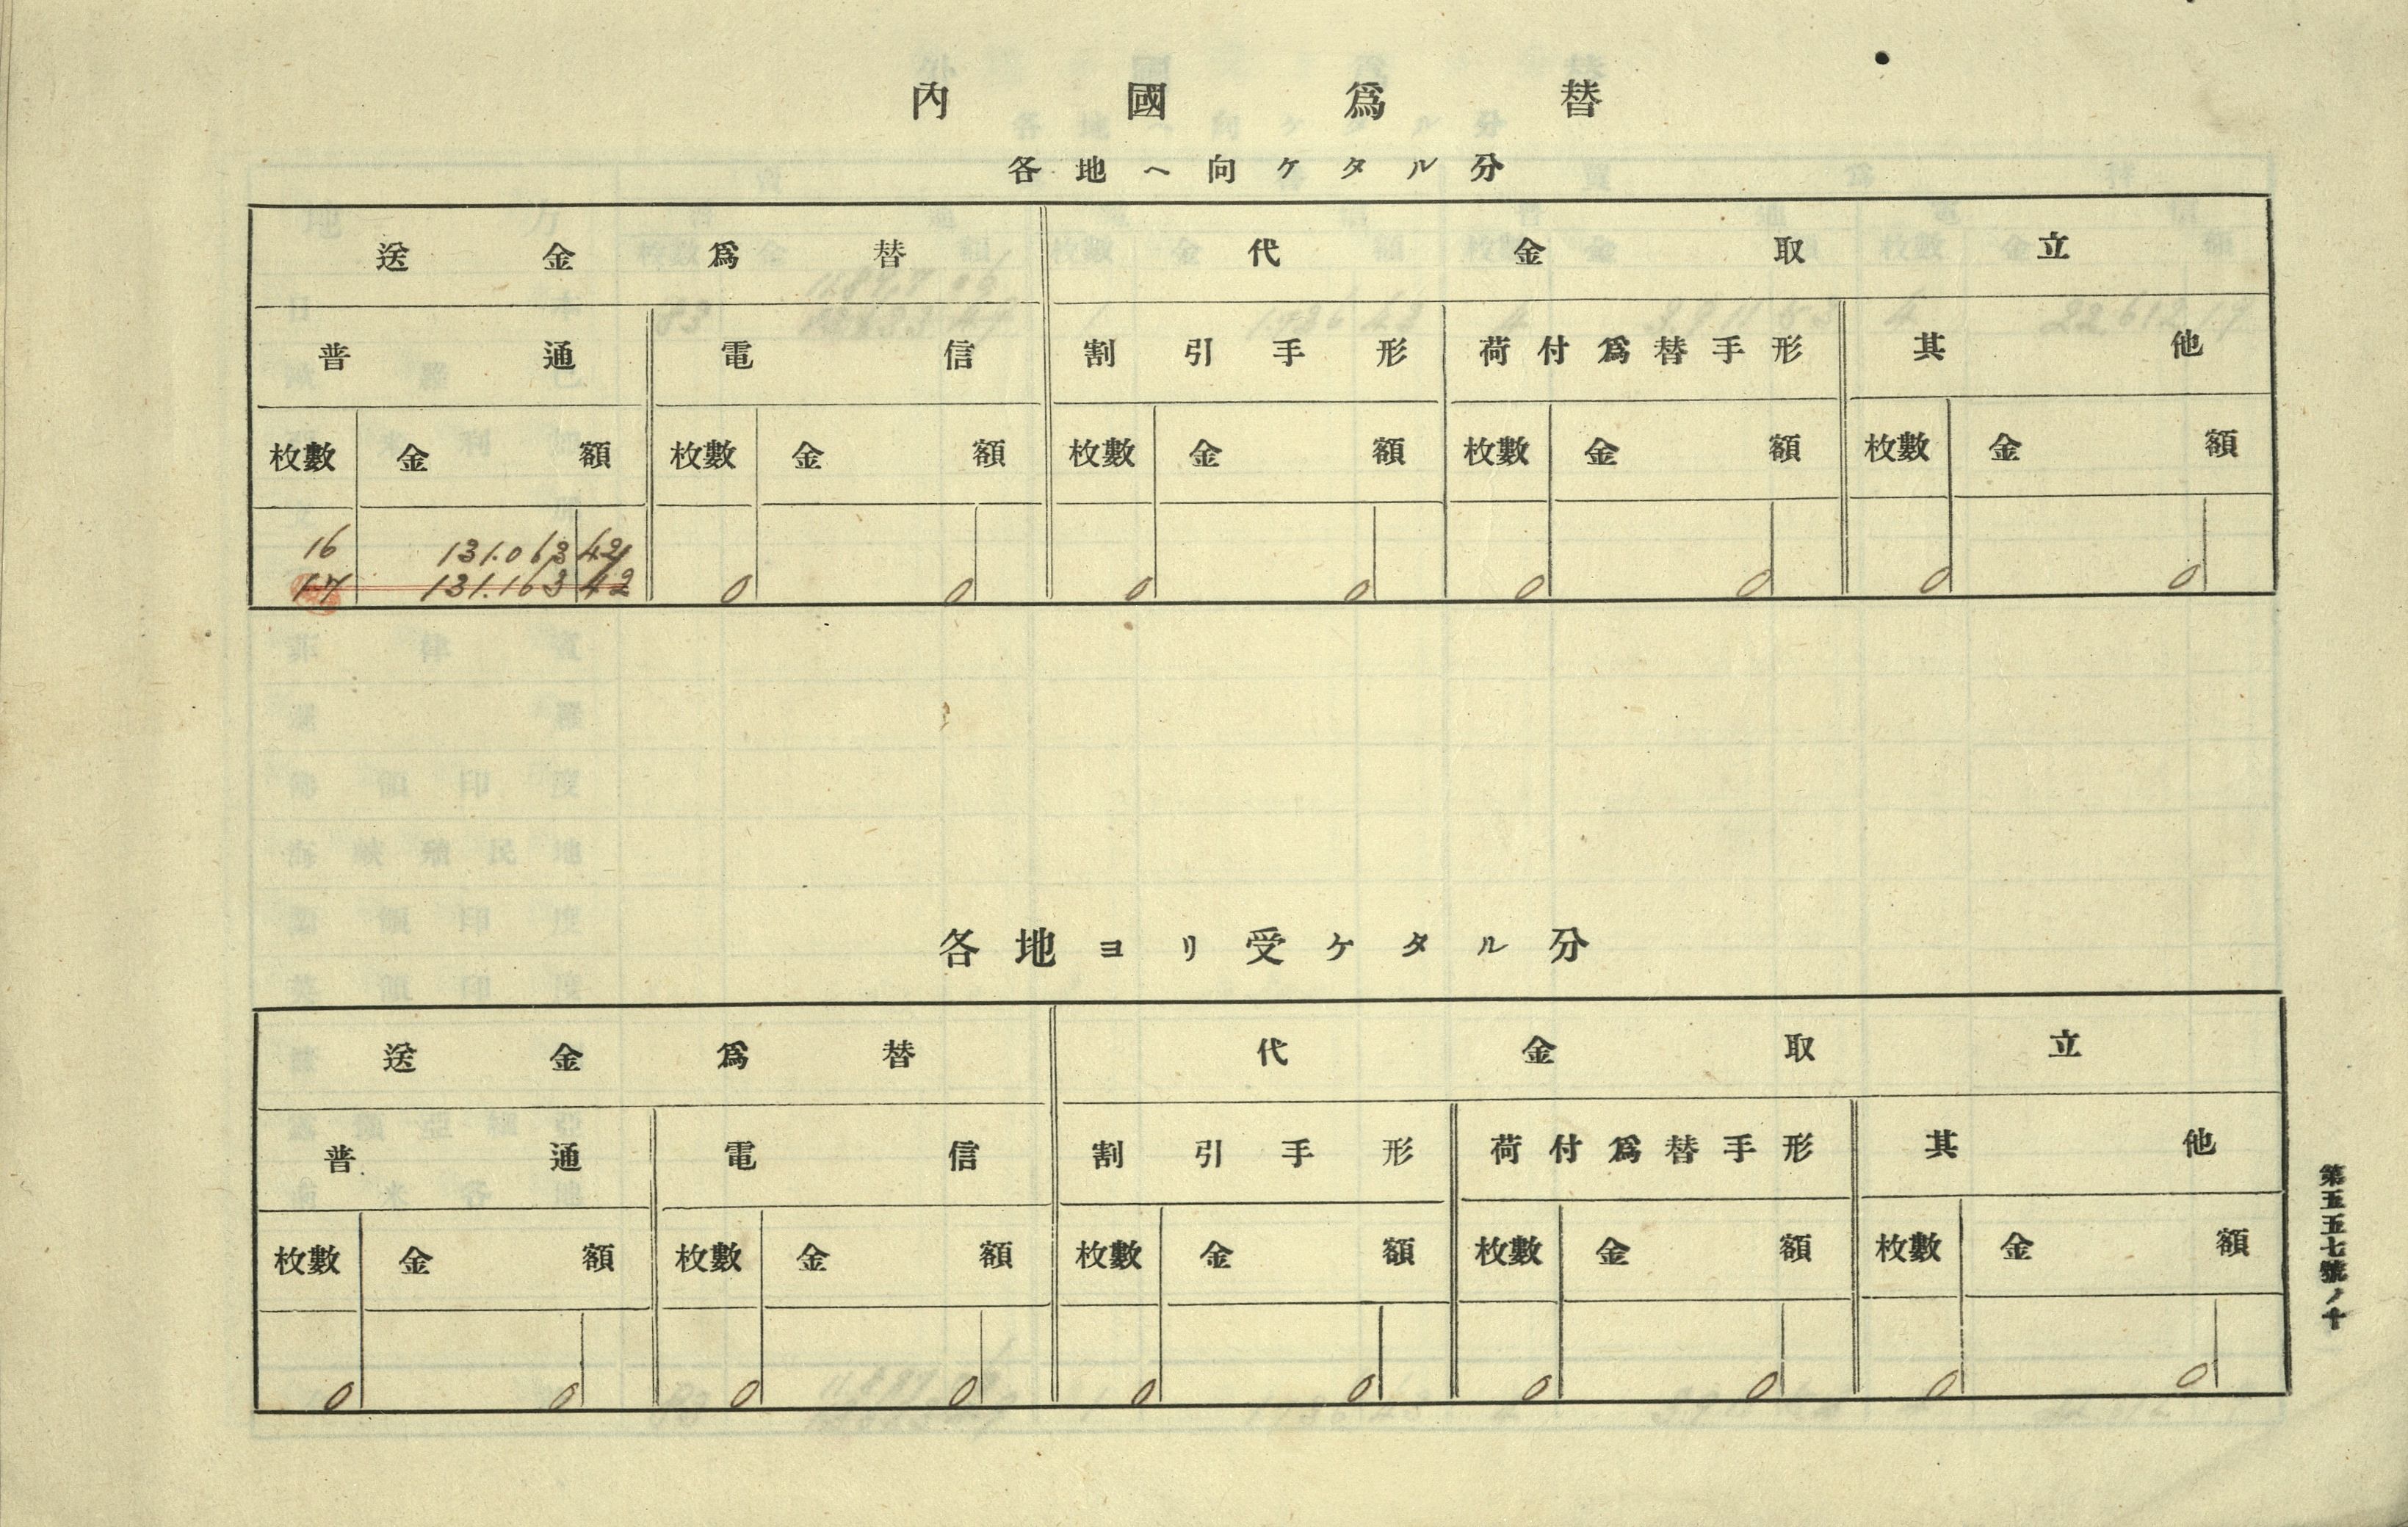 內國爲替
各地へ向ケタル分
送金爲替 代金取立
普通 電信 割引手形 荷付爲替手形 其他
枚數 金額 枚數 金額 枚數 金額 枚數 金額 枚數 金額
16 131.063 42
17 131.163 42 0 0 0 0 0 0 0 0
各地ヨリ受ケタル分
送金爲替 代金取立
普通 電信 割引手形 荷付爲替手形 其他
枚數 金額 枚數 金額 枚數 金額 枚數 金額 枚數 金額
0 0 0 0 0 0 0 0 0 0
第五五七號ノ十